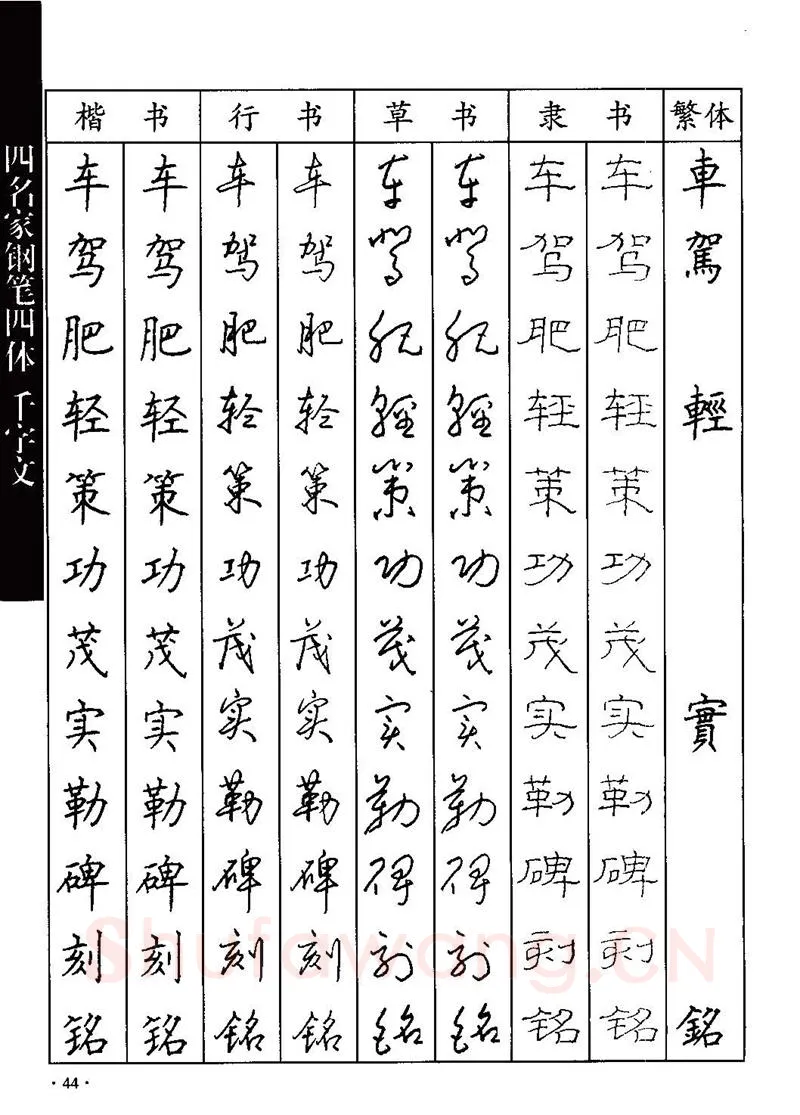 四名家钢笔四体 千字文
楷书 行书 草书 隶书 繁体
车 车 车 车 车 车 车 车 車
驾 驾 驾 驾 驾 驾 驾 驾 駕
肥 肥 肥 肥 肥 肥 肥 肥
轻 轻 轻 轻 轻 轻 轻 轻 輕
策 策 策 策 策 策 策 策
功 功 功 功 功 功 功 功
茂 茂 茂 茂 茂 茂 茂 茂
实 实 实 实 实 实 实 实 實
勒 勒 勒 勒 勒 勒 勒 勒
碑 碑 碑 碑 碑 碑 碑 碑
刻 刻 刻 刻 刻 刻 刻 刻
铭 铭 铭 铭 铭 铭 铭 铭 銘
Shufawang.CN
·44·